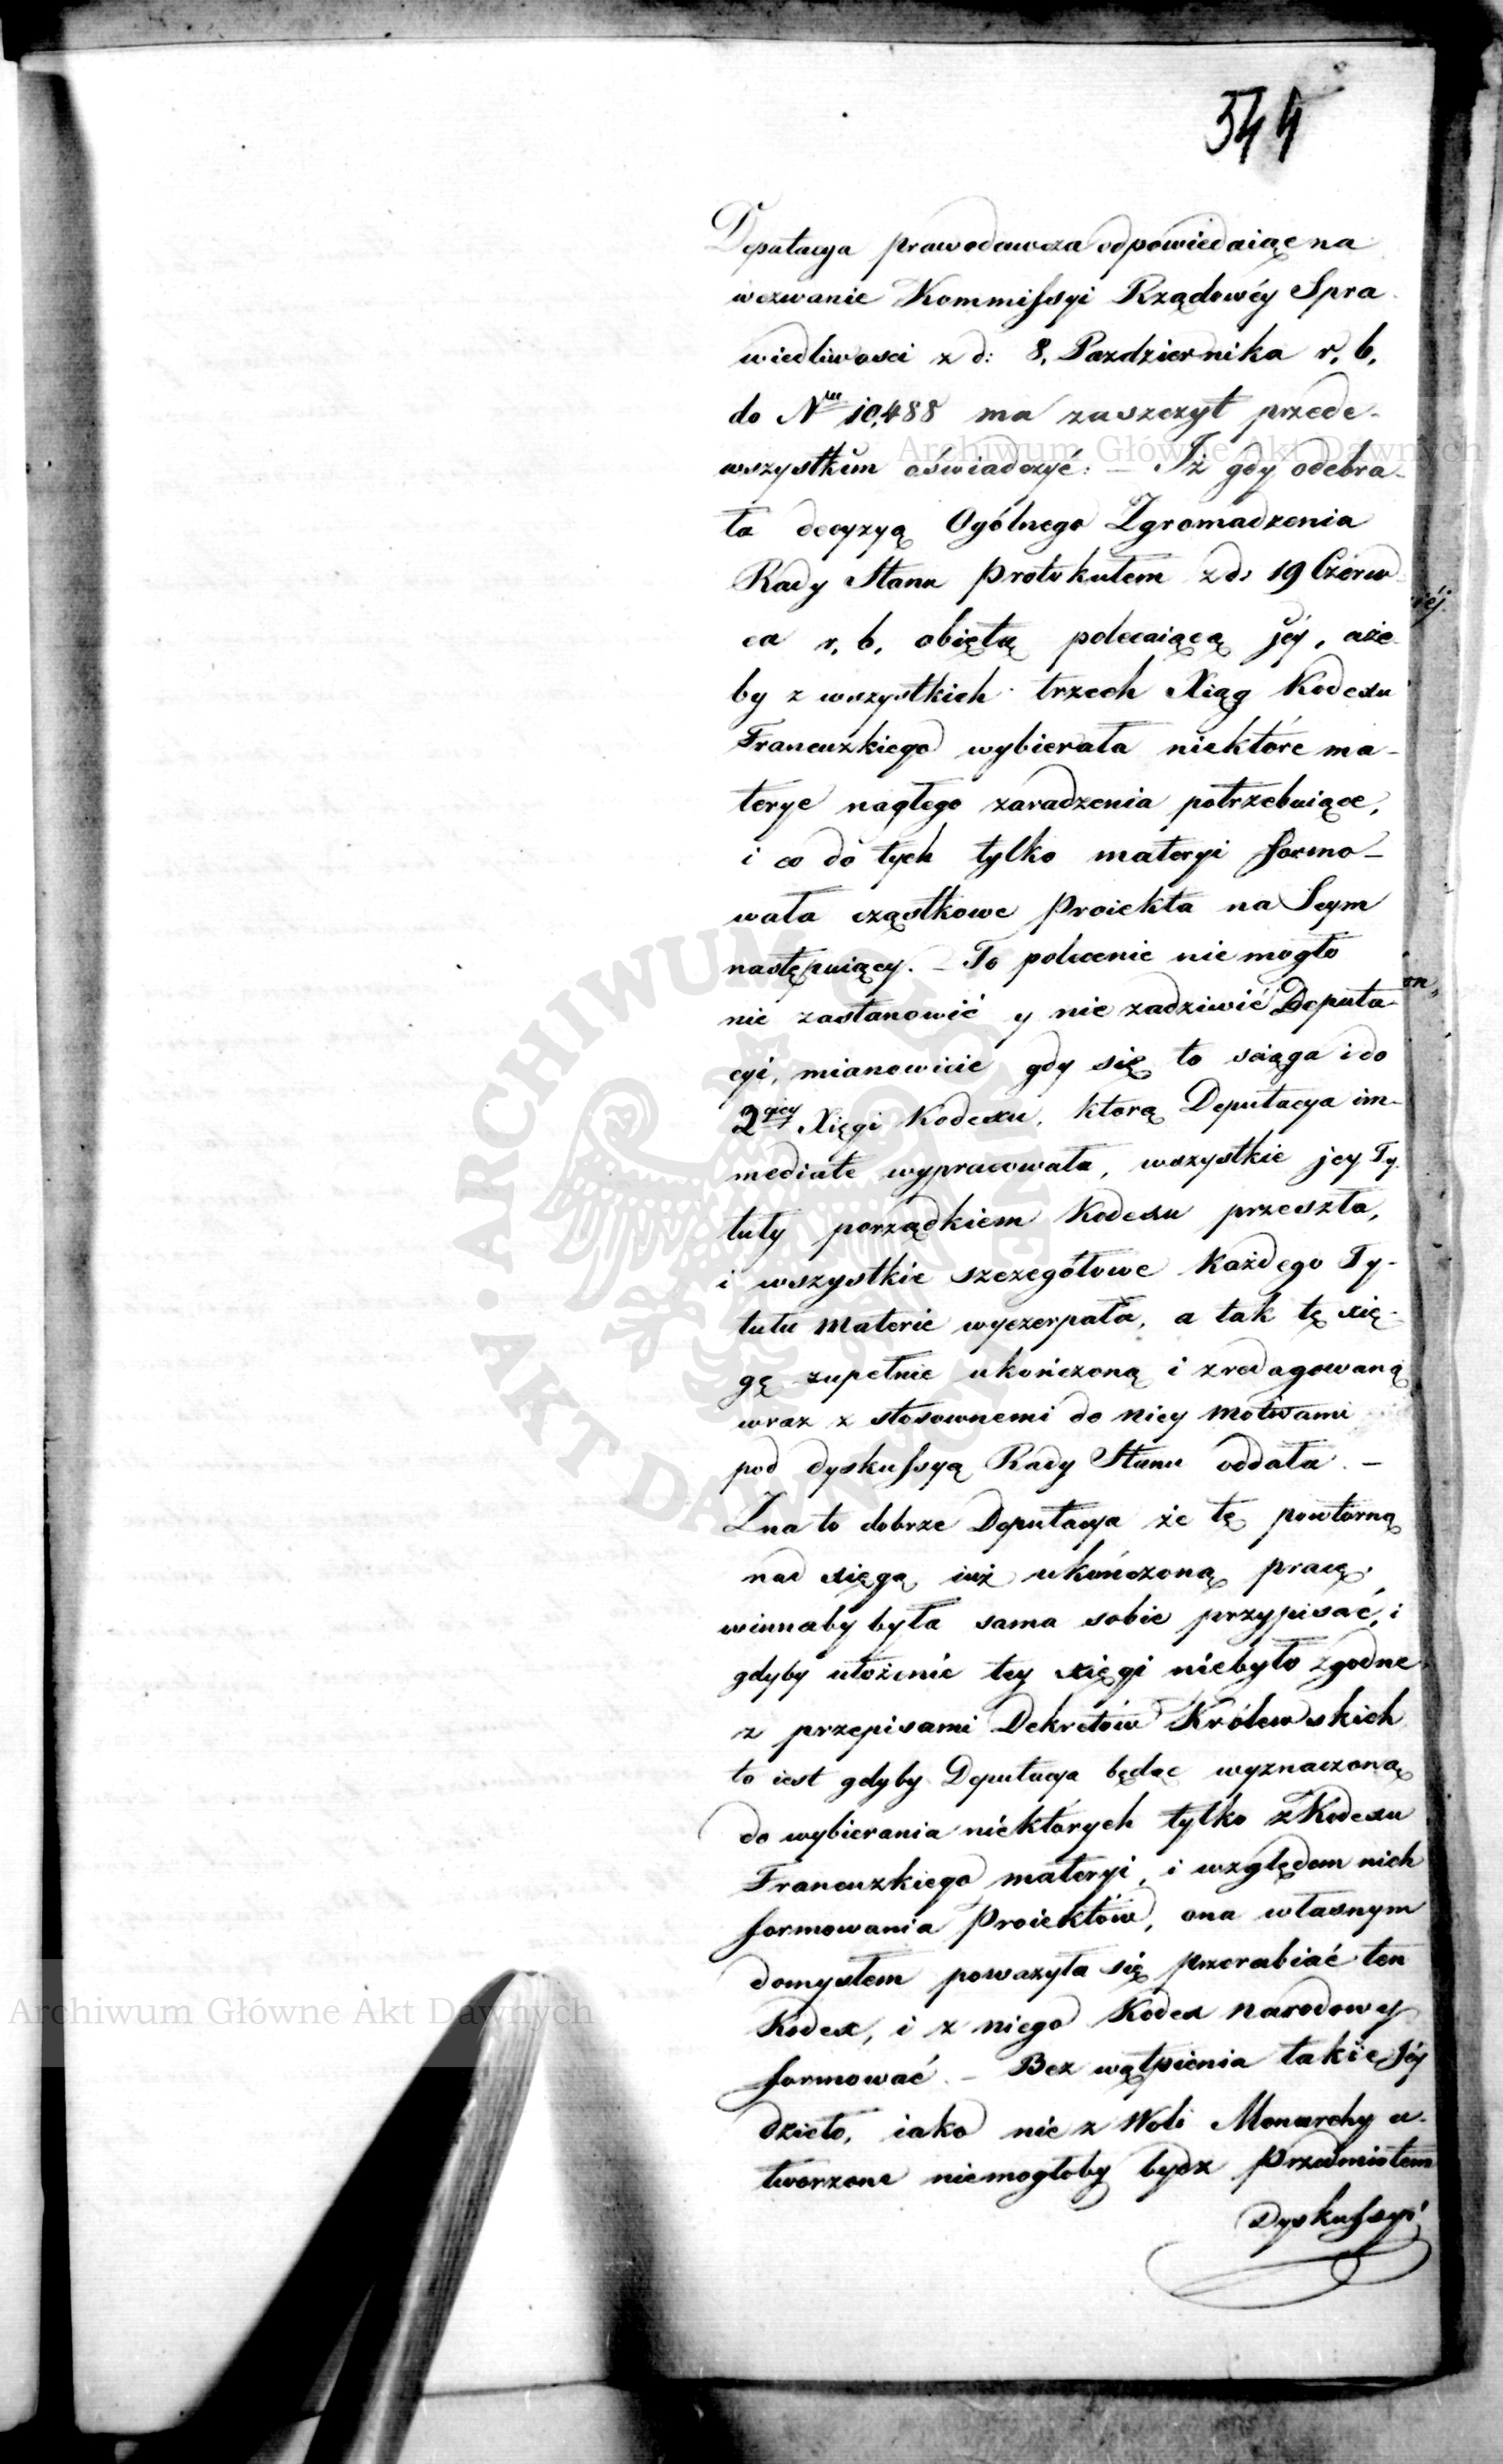 544
Deputacya prawodawcza odpowiedaiąc na
wezwanie Kommissyi Rządowéy Spra-
wiedliwosci z d: 8. Pazdziernika r. b.
do Nru 10,488 ma zaszczyt przede-
wszystkim oświadczyć: – Iż gdy odebra-
ła decyzyą Ogólnego Zgromadzenia
Rady Stanu Protokułem z d: 19 Czerw-
ca r. b. obiętą polecaiącą jéy, aże-
by z wszystkich trzech Xiąg Kodexu
Francuzkiego wybierała niektóre ma-
terye nagłego zaradzenia potrzebuiące,
i co do tych tylko materyi formo-
wała cząstkowe Proiekta na Seym
następuiący. – To polecenie nie mogło
nie zastanowić y nie zadziwić Deputa-
cyi, mianowicie gdy się to sciąga i do
2giey Xięgi Kodexu, ktorą Deputacya im-
mediate wypracowała, wszystkie jey Ty-
tuły porządkiem Kodexu przeszła,
i wszystkie szczegółowe każdego Ty-
tułu Materie wyczerpała, a tak tę xię-
gę zupełnie ukończoną i zredagowaną
wraz z stosownemi do niey Motivami
pod dyskussyą Rady Stanu oddała. –
Zna to dobrze Deputacya że tę powtorną
nad xięgą iuż ukończoną pracę,
winnaby była sama sobie przypisać,
gdyby ułożenie tey xięgi niebyło zgodne
z przepisami Dekretów Królewskich
to iest gdyby Deputacya będąc wyznaczoną
do wybierania niektórych tylko z Kodexu
Francuzkiego materyi, i względem nich
formowania Proiektów, ona własnym
domysłem poważyła się przerabiać ten
Kodex, i z niego Kodex narodowy
formować. – Bez wątpienia takie jéy
dzieło, iako nie z Woli Monarchy u-
tworzone niemogłoby bydz Przedmiotem
Dyskussyi
Archiwum Główne Akt Dawnych
Archiwum Główne Akt Dawnych
ARCHIWUM GŁÓWNE AKT DAWNYCH